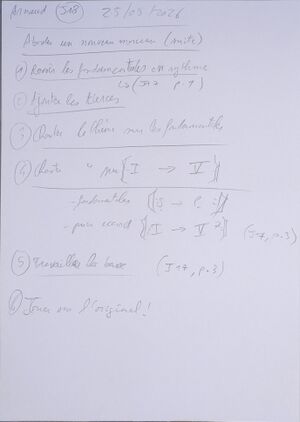 Arnaud (J18) 25/05/2026
Aborder un nouveau morceau (suite)
(1) Revoir les fondamentales en rythme
↳ (J17 p. 1)
(2) Ajouter les tierces
(3) Chanter le thème sur les fondamentales
(4) Chanter " sur I → V
- fondamentales
- puis accord I → V (J17, p.3)
(5) Travailler les (J17, p.3)
(6) Jouer sur l'original !